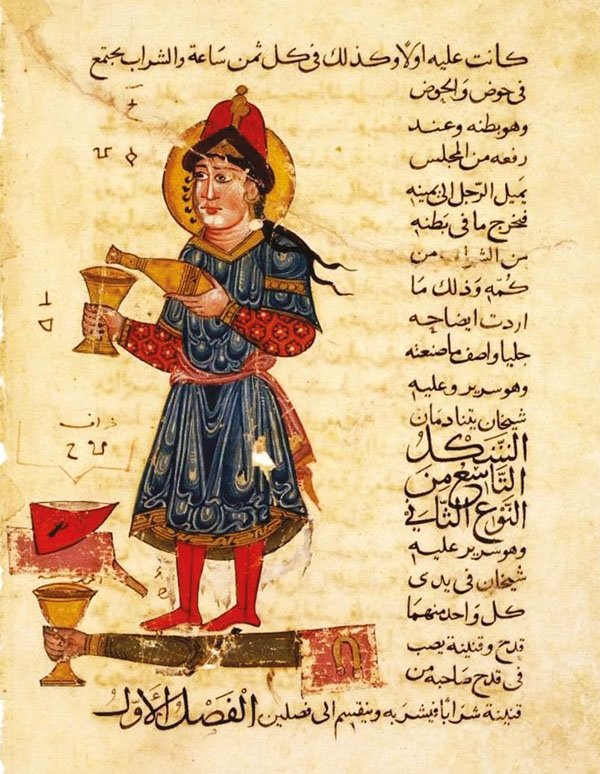 كانت عليه اولا وكذلك فى كل ثمن ساعة والشراب يجتمع
فى حوض والحوض
وهو بطنه وعند
رفعه من المجلس
يميل الرجل الى يمينه
فيخرج ما فى بطنه
من الشراب من
كمه وذلك ما
اردت ايضاحه
جليا واصف ما صنعته
وهو سرير وعليه
شيخان يتنادمان
الشكل
التاسع من
النوع الثاني
وهو سرير عليه
شيخان فى يدى
كل واحد منهما
قدح وقنينة يصب
فى قدح صاحبه من
قنينة شرابا فيشربه وينقسم الى فصلين الفصل الأول